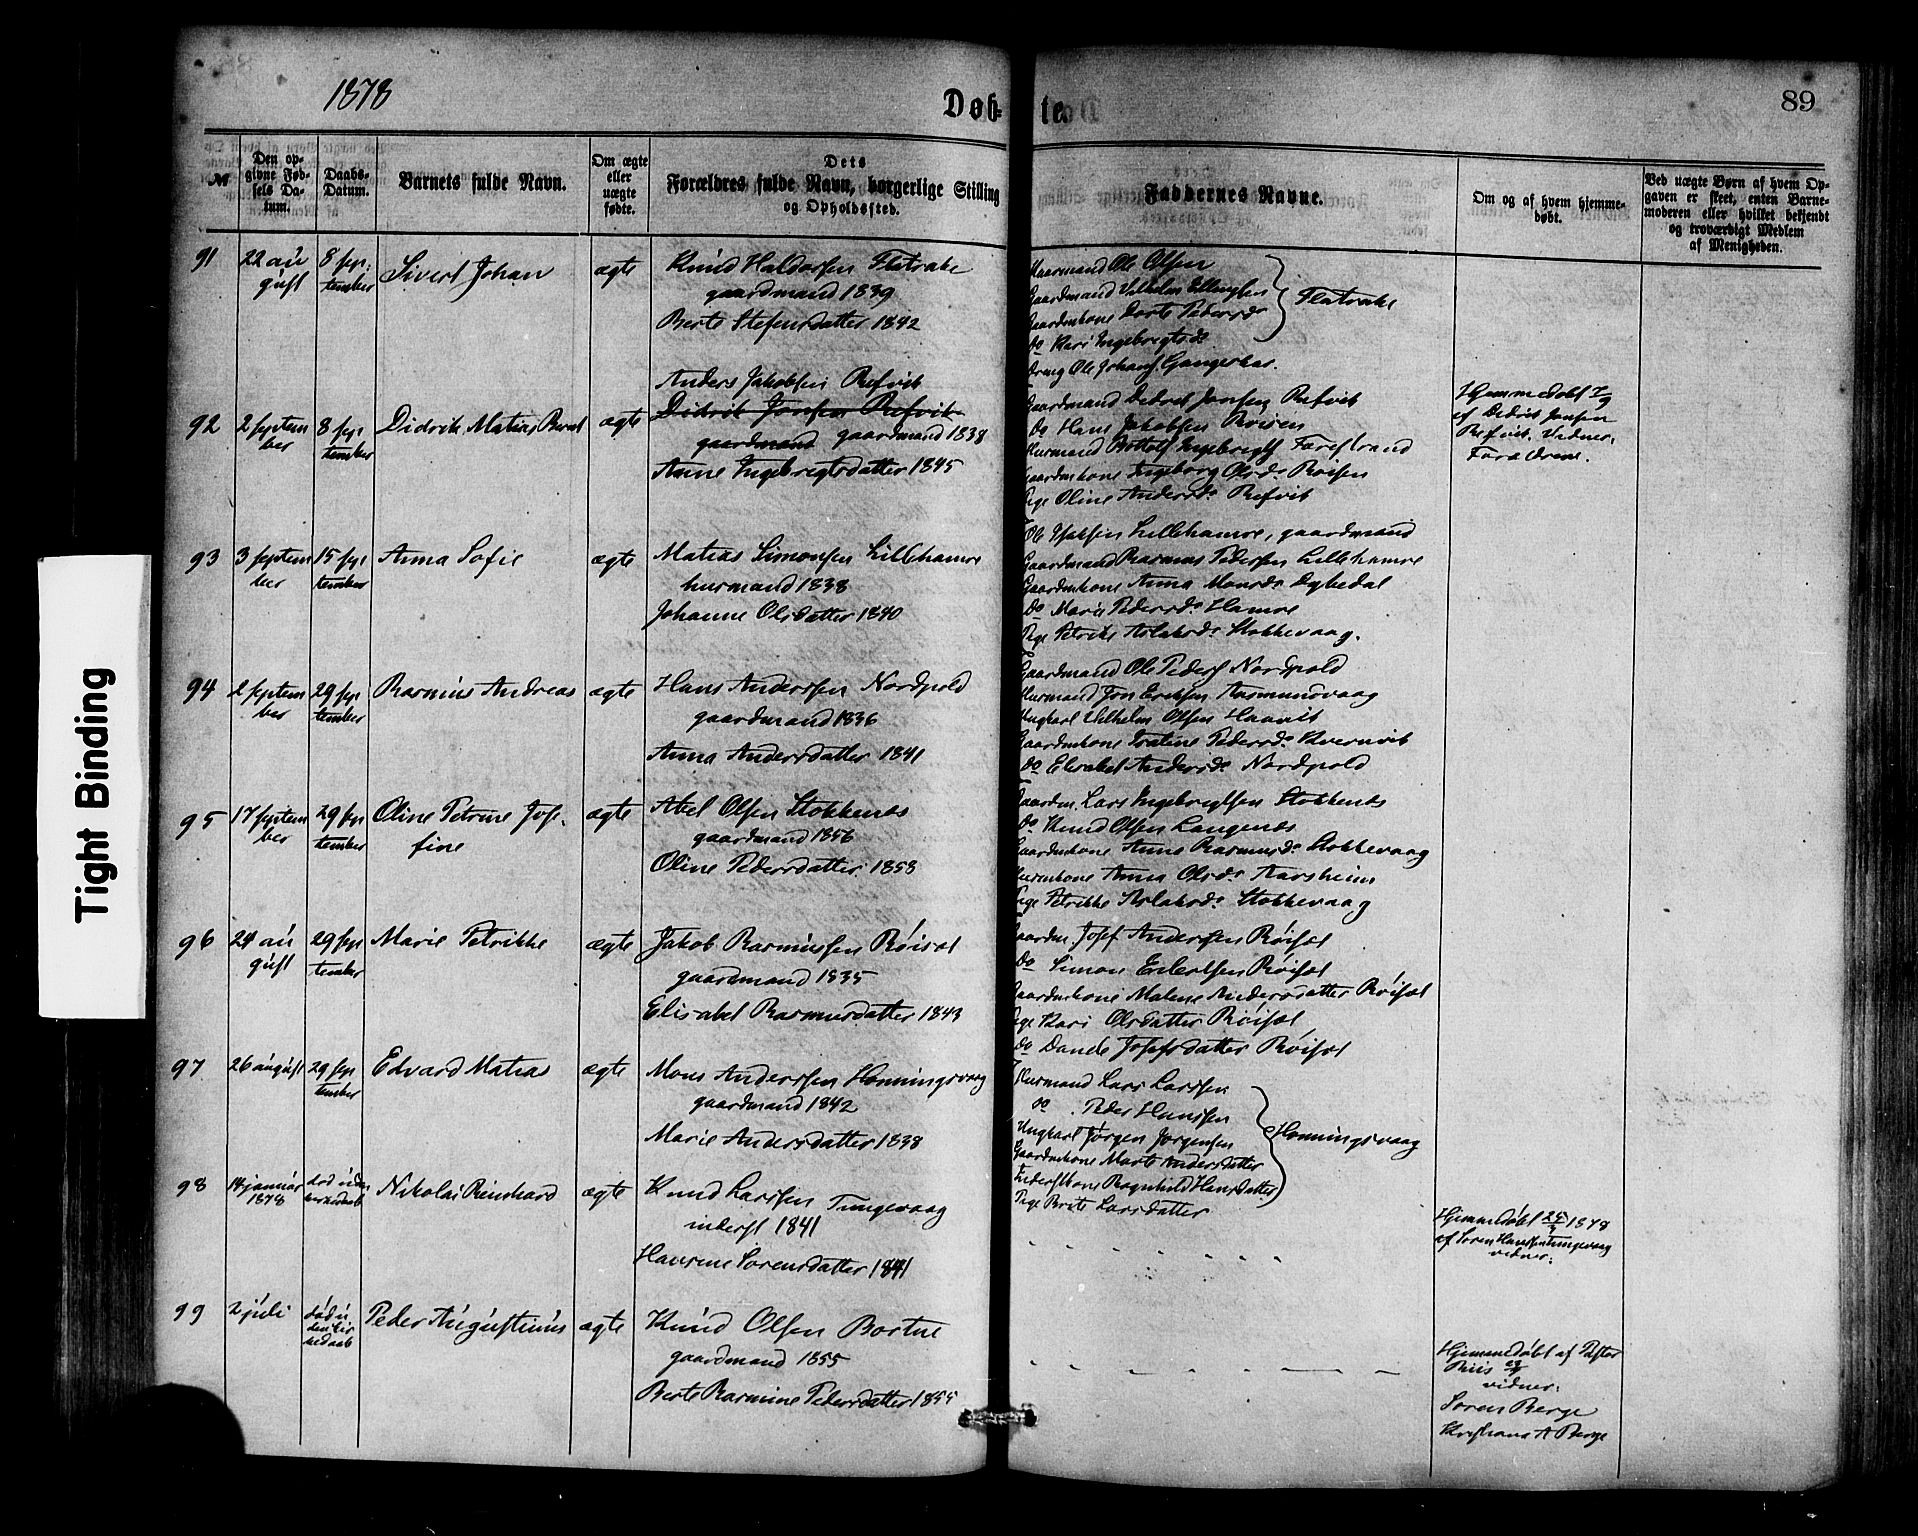 1878
Døb-
te.
89
№
Den op-
givne Fød-
sels Da-
tum.
Daabs-
Datum.
Barnets fulde Navn.
Om ægte
eller
uægte
fødte.
Dets
Forældres fulde Navn, borgerlige Stilling
og Opholdssted.
Faddernes Navne.
Om og af hvem hjemme-
døbt.
Ved uægte Børn af hvem Op-
gaven er skeet, enten Barne-
moderen eller hvilket bekjendt
og troværdigt Medlem
af Menigheden.
91
22 au
gust
8 sep
tember
Sivert Johan
ægte
Knud Haldorsen Flatrake
gaardmand 1839
Berte Stefensdatter 1842
Gaardmand Ole Olsen
Gaardmand Vilhelm Ellingsen
Gaardmkone Dorte Pedersd.
do Kari Ingebrigtsd.
Flatrake
Dreng Ole Johans.
92
2 septem
ber
8 sep
tember
Didrik Matias Bernt
ægte
Anders Jakobsen Refvik
Didrik Jonsen Refvik
gaardmand gaardmand 1838
Anne Ingebrigtsdatter 1845
Gaardmand Didrik Jonsen Refvik
do Hans Jakobsen Roisen
Husmand Bottolf Ingebrigts Farestrand
Gaardmkone Ingeborg Olsd. Roisen
Pige Oline Andersd. Refvik
Hjemmedøbt 7/9
af Didrik Jonsen
Refvik. Vidner.
Forældrene.
93
3 septem
ber
15 sep
tember
Anna Sofie
ægte
Matias Simonsen Lillehamre
husmand 1838
Johanne Olsdatter 1840
Ole Isaksen Lillehamre, gaardmand
Gaardmand Rasmus Pedersen Lillehamre
Gaardmkone Anna Monsd. Dybedal
Do Marie Pedersd. Hamre
Pige Petrike Aslaksd. Stokkevaag.
94
2 septem
ber
29 sep
tember
Rasmus Andreas
ægte
Hans Anderssen Nordpold
gaardmand 1836
Anna Andersdatter 1841
Gaardmand Ole Peders Nordpold
Husmand Jon Eriksen Aasmundvaag
Ungkarl Vilhelm Olsen Haavik
Gaardmkone Pedersd. Kvernvik
do Elisabet Andersd. Nordpold
95
17 septem
ber
29 sep
tember
Oline Petrine Jose-
fine
ægte
Abel Olsen Stokkenes
gaardmand 1856
Oline Pedersdatter 1853
Gaardm. Lars Ingebrigtsen Stokkenes
do Knud Olsen Langenes
Gaardmkone Anne Rasmusd. Stokkevaag
Husmkone Anna Olsd. Aarsheim
Pige Petrikke Aslaksd. Stokkevaag
96
24 au
gust
29 sep
tember
Marie Petrikke
ægte
Jakob Rasmussen Röiset
gaardmand 1835
Elisabet Rasmusdatter 1843
Gaardm. Josef Andersen Röiset
do Simon Röiset
Gaardmkone Malene Andersdatter Röiset
Pige Kari Olsdatter Röiset
do Josefsdatter Röiset
97
26 august
29 sep
tember
Edvard Matias
ægte
Mons Anderssen Honningsvaag
gaardmand 1842
Marie Andersdatter 1838
Husmand Lars Larssen
do. Peder Hanssen
Ungkarl Jørgen Jørgensen
Gaardmkone Marte Andersdatter
Inderstkone Ragnhild Hansdatter
Pige Berte Larsdatter
Honningsvaag
98
14 januar
1878
død uden
kirkedaab
Nikolai Reinhard
ægte
Knud Larssen Tungevaag
inderst 1841
Hansine Sorensdatter 1841
Hjemmedøbt 1878
af Soren Hanssen Tungevaag
vidner:
99
2 juli
død u
den kir
kedaab
Peder Augustinus
ægte
Knud Olsen Bortne
gaardmand 1855
Berte Rasmine Pedersdatter 1855
Hjemmedøbt af Præster
Riis
vidner:
Soren Berge
Kristiana A Berge
Tight Binding